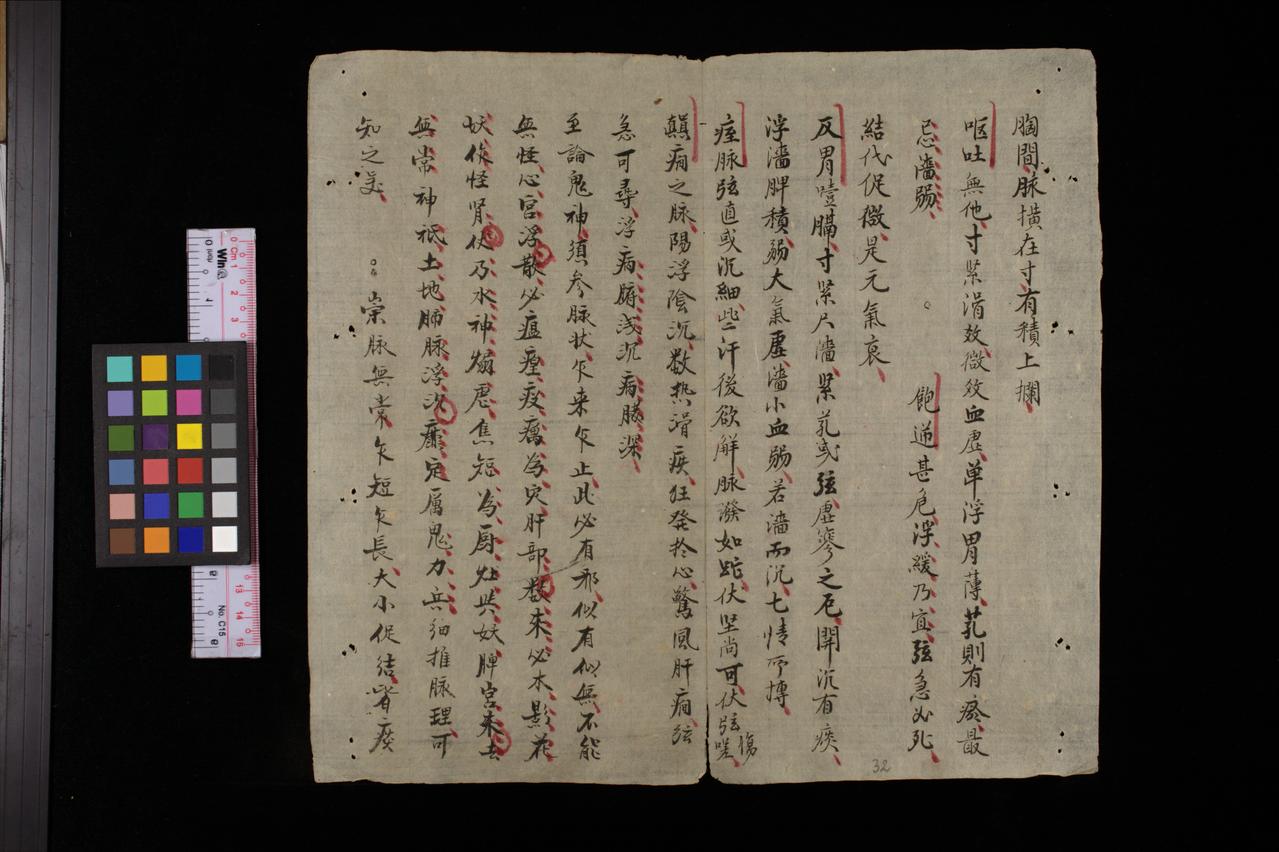 胸間脉橫在寸有積上攔
呕吐無他寸紧滑效微效血虛单浮胃薄芤則有瘀最
忌濇弱。飽逆甚危浮緩乃宜弦急必死
結代促微是元氣衰
反胃噎膈寸紧尺濇紧芤或弦虛寒之厄開沉有痰
浮濇脾積弱大氣虛濇小血弱若濇而沉七情所摶
痓脉弦直或沉細些汗後欲解脉潑如蛇伏坚尚可伏弦傷嗟
顛癇之脉陽浮陰沉数热滑疾狂発於心驚風肝癇弦
急可尋浮病腑浅沉病臟深
至論鬼神須參脉状乍来乍止此必有邪似有似無不能
無怪心宮浮散必瘟瘴疫癘為灾肝部数来必木影花
妖作怪肾伏乃水神溺虑焦短為厨灶共妖脾宮来去
無常神祇土地肺脉浮沉靡定厲鬼力兵細推脉理可
知之矣
祟脉無常乍短乍長大小促结皆痰
32